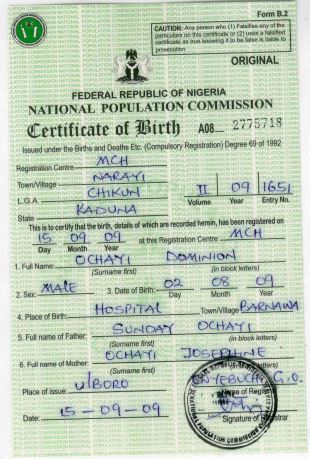 Form B.2
CAUTION: Any person who (1) Falsifies any of the
particulars on this certificate or (2) uses a falsified
certificate as true knowing it to be false is liable to
prosecution
ORIGINAL
FEDERAL REPUBLIC OF NIGERIA
NATIONAL POPULATION COMMISSION
Certificate of Birth A08 2775718
Issued under the Births and Deaths Etc. (Compulsory Registration) Degree 69 of 1992
Registration Centre MCH
Town/Village NARAYI
L.G.A. CHIKUN II 09 1651
Volume Year Entry No.
State KADUNA
This is to certify that the birth, details of which are recorded herein, has been registered on
15 09 09 at this Registration Centre MCH
Day Month Year
1. Full Name: OCHAYI DOMINION
(Surname first) (in block letters)
2. Sex: MALE 3. Date of Birth: 02 08 09
Day Month Year
4. Place of Birth: HOSPITAL Town/Village BARNAWA
5. Full name of Father: SUNDAY OCHAYI
(Surname first) (in block letters)
6. Full name of Mother: OCHAYI JOSEPHINE
(Surname first) (in block letters)
Place of issue: U/BORO G.O.
Name of Registrar
Date: 15-09-09
Signature of Registrar